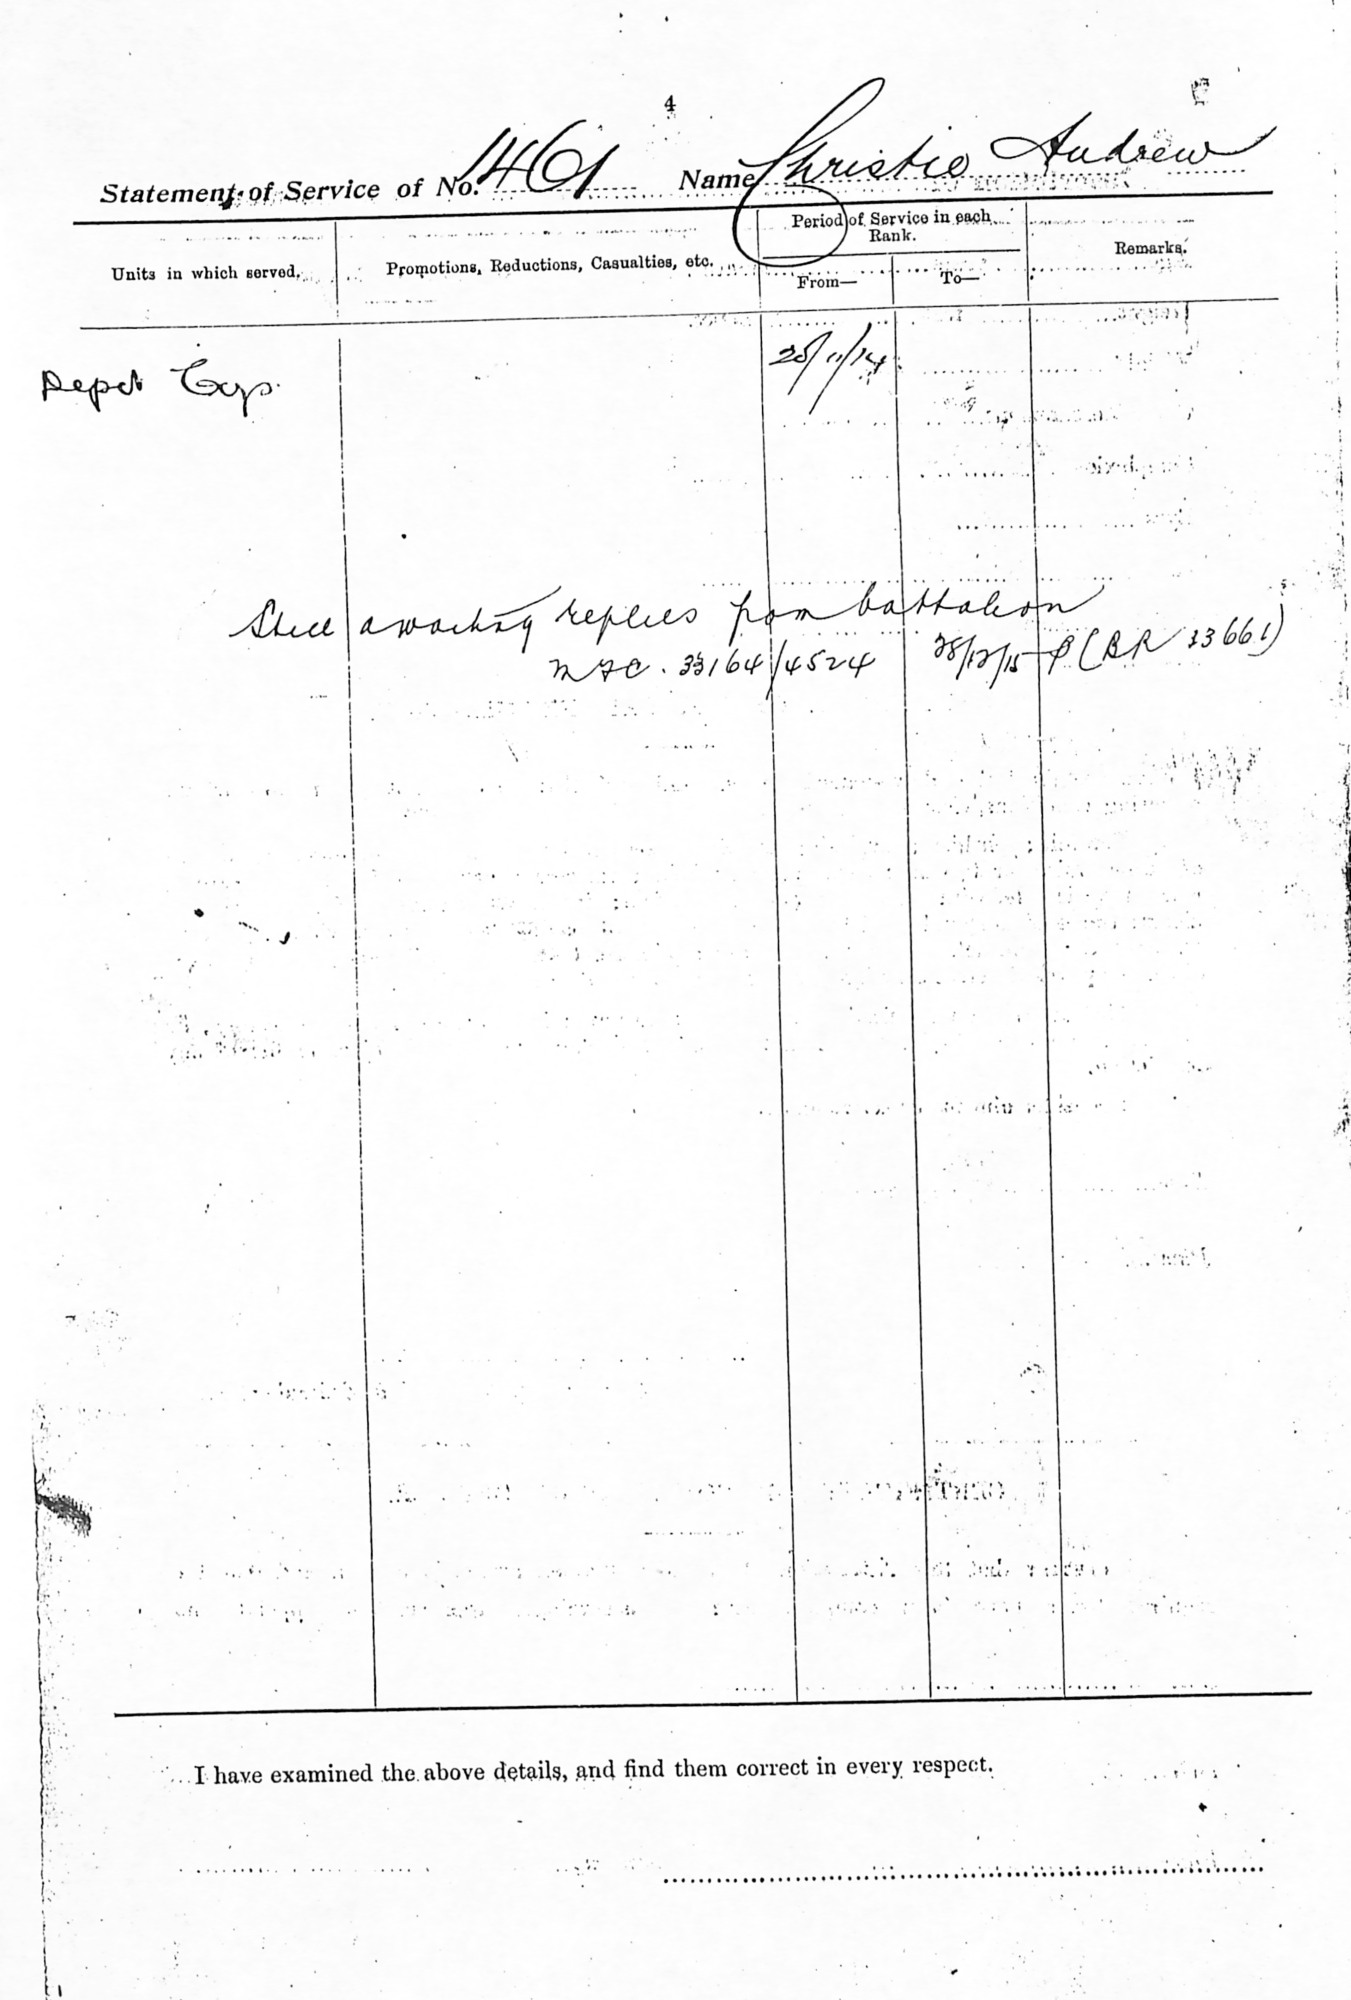 4
Statement of Service of No. 1461 Name Christie Andrew
Units in which served. Promotions, Reductions, Casualties, etc. Period of Service in each Rank. From— To— Remarks.
Depot Coy. 25/11/14
Still awaiting replies from battalion
33164/4524 28/12/15 (BR 33661)
I have examined the above details, and find them correct in every respect.